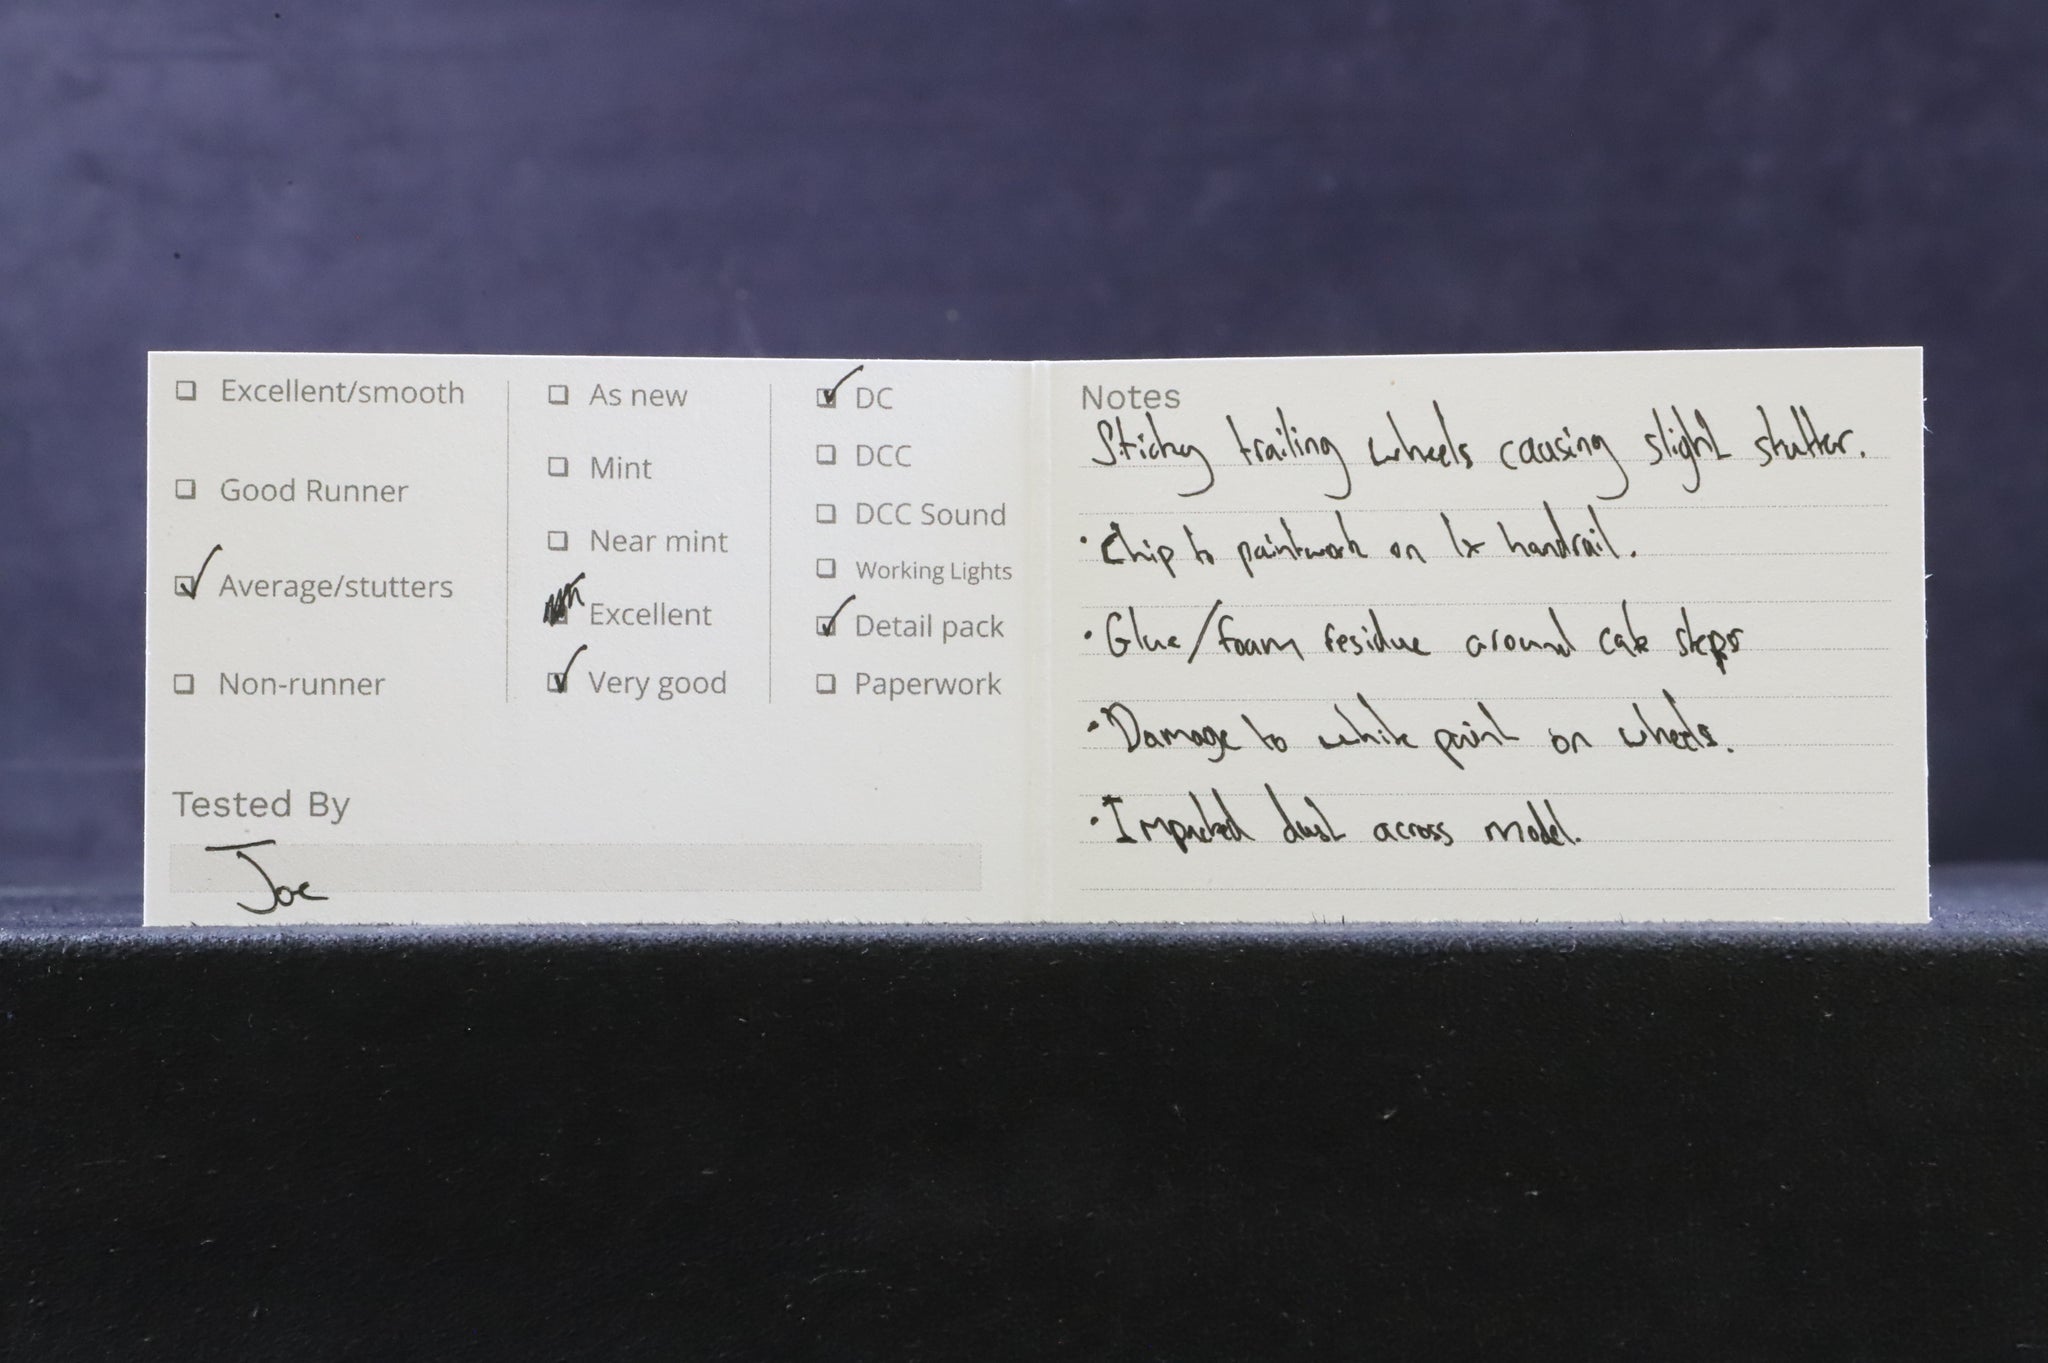 Excellent/smooth
Good Runner
Average/stutters
Non-runner
As new
Mint
Near mint
Excellent
Very good
DC
DCC
DCC Sound
Working Lights
Detail pack
Paperwork
Tested By
Joe
Notes
Sticky trailing wheels causing slight stutter.
• Chip to paintwork on 1x handrail.
• Glue/foam residue around cab steps
• Damage to white paint on wheels.
• Impacted dust across model.